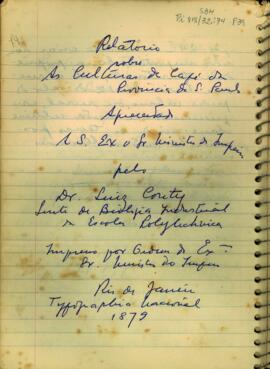 SBH
Pi 818/32; 94 P39
Relatorio
sobre
As Culturas de Café da
Provincia de S. Paulo
Apresentado
A S. Ex. o Sr. Ministro do Imperio
pelo
Dr. Luiz Couty
Lente de Biologia Industrial
na Escola Polytechnica
Impresso por Ordem de Ex.
Sr. Ministro do Imperio
Rio de Janeiro
Typographia Nacional
1879